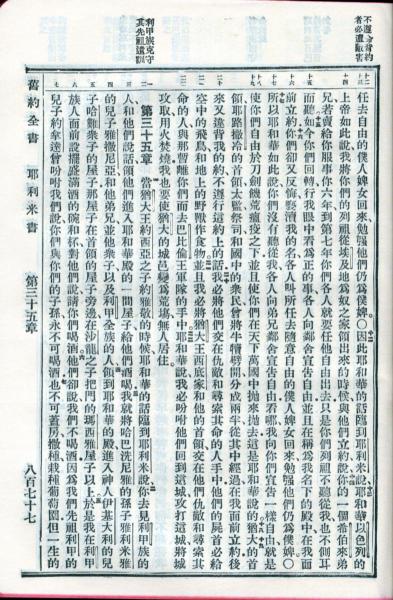 不遵命背約
者必遭敵害
利甲族克守
其先祖遺訓
任去自由的僕人婢女回來勉强他們仍爲僕婢〇因此耶和華的話臨到耶利米說耶和華以色列的
上帝如此說我將你們的列祖從埃及地爲奴之家領出來的時候與他們立約說你的一個希伯來弟
兄若賣給你服事你六年到第七年你們各人就要任他自由出去只是你們列祖不聽從我也不側耳
而聽如今你們回轉行我眼中看爲正的事各人向鄰舍宣告自由並且在稱爲我名下的殿中在我面
前立約你們卻又反悔褻瀆我的名各人叫所任去隨意自由的僕人婢女回來勉强他們仍爲僕婢〇
所以耶和華如此說你們沒有聽從我各人向弟兄鄰舍宣告自由看哪我向你們宣告一樣自由就是
使你們自由於刀劍饑荒瘟疫之下並且使你們在天下萬國中拋來拋去這是耶和華說的猶大的首
領耶路撒冷的首領太監祭司和國中的衆民曾將牛犢劈開分成兩半從其中經過在我面前立約後
來又違背我的約不遵行這約上的話我必將他們交在仇敵和尋索其命的人手中他們的屍首必給
空中的飛鳥和地上的野獸作食物並且我必將猶大王西底家和他的首領交在他們仇敵和尋索其
命的人與那暫離你們而去巴比倫王軍隊的手中耶和華說我必吩咐他們回到這城攻打這城將城
攻取用火焚燒我也要使猶大的城邑變爲荒塲無人居住
第三十五章 當猶大王約西亞之子約雅敬的時候耶和華的話臨到耶利米說你去見利甲族的
人和他們說話領他們進入耶和華殿的一間屋子給他們酒喝我就將哈巴洗尼雅的孫子雅利米雅
的兒子雅撒尼亞和他弟兄並他衆子以及利甲全族的人領到耶和華的殿進入神人伊基大利的兒
子哈難衆子的屋子那屋子在首領的屋子旁邊在沙龍之子把門的瑪西雅屋子以上於是我在利甲
族人面前設擺盛滿酒的碗和杯對他們說請你們喝酒他們卻說我們不喝酒因爲我們先祖利甲的
兒子約拿達曾吩咐我們說你們與你們的子孫永不可喝酒也不可蓋房撒種栽種葡萄園但一生的
舊約全書 耶利米書 第三十五章 八百七十七